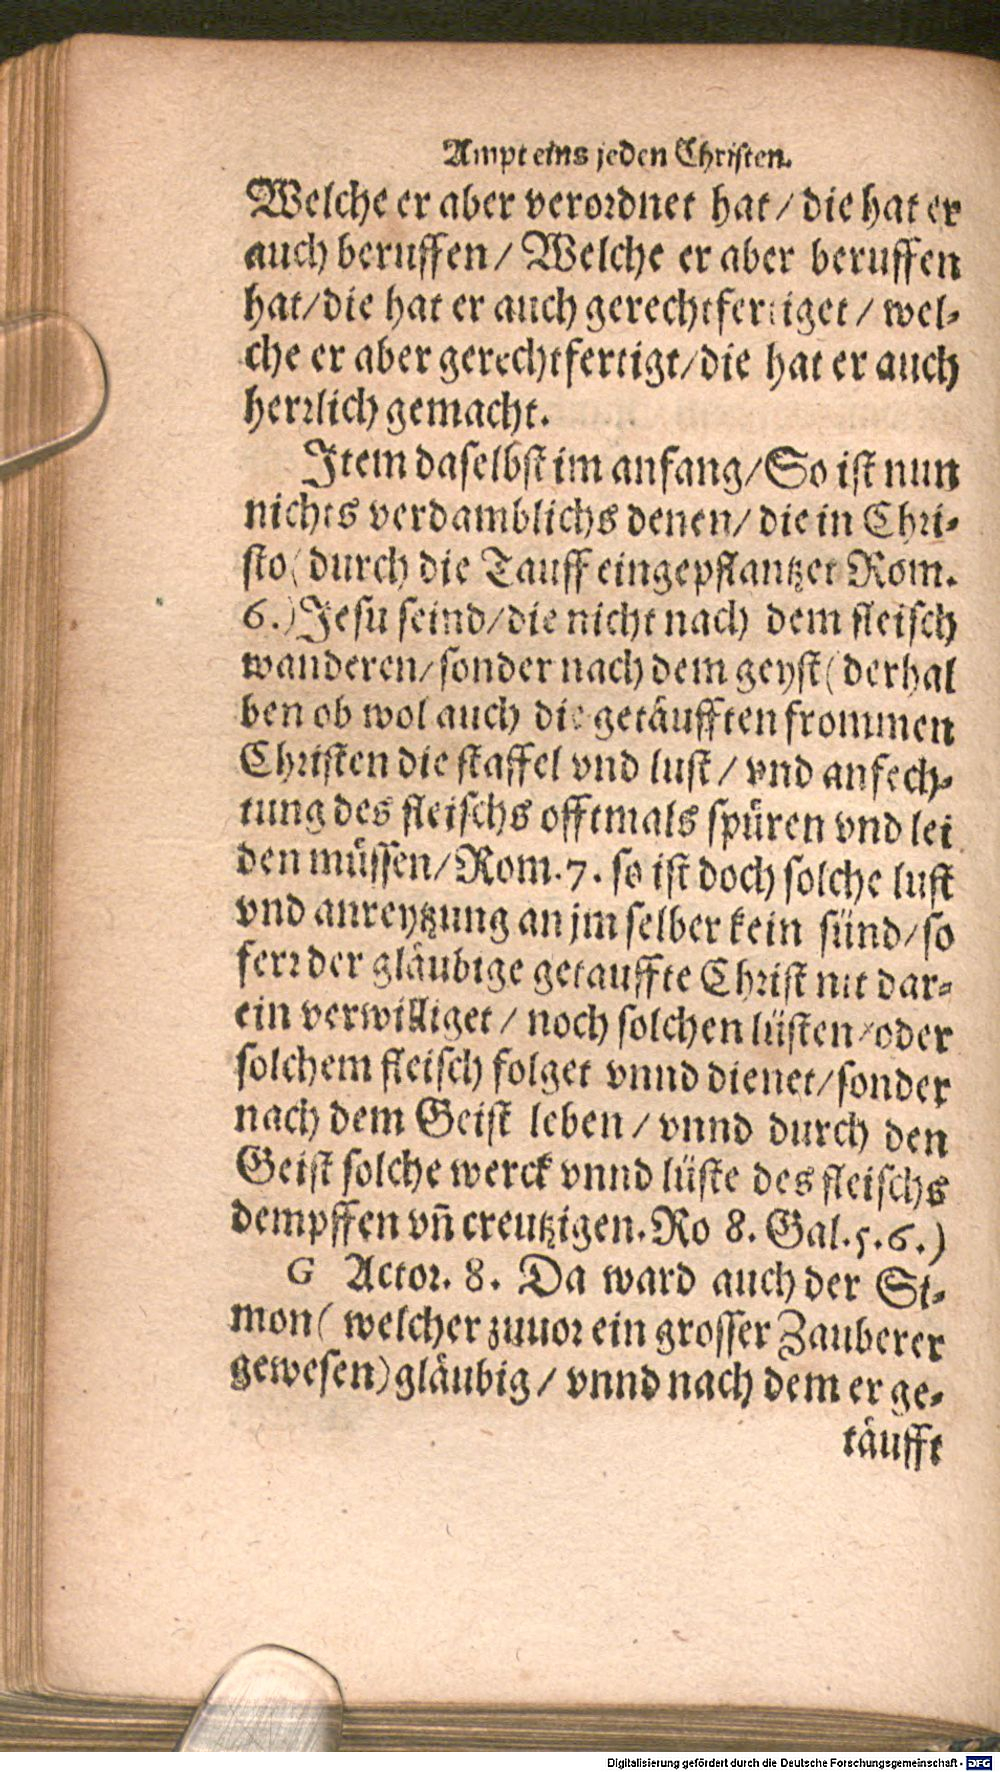 Ampt eins jeden Christen.
Welche er aber verordnet hat / die hat er
auch beruffen / Welche er aber beruffen
hat/die hat er auch gerechtfertiget / wel-
che er aber gerechtfertigt/die hat er auch
herrlich gemacht.
Jtem daselbst im anfang/So ist nun
nichts verdamblichs denen/ die in Chri-
sto ( durch die Tauff eingepflantzet Rom.
6.) Jesu seind/die nicht nach dem fleisch
wanderen/sonder nach dem geyst ( derhal
ben ob wol auch die getäufften frommen
Christen die staffel vnd lust / vnd anfech-
tung des fleischs offtmals spüren vnd lei
den müssen/Rom.7. so ist doch solche lust
vnd anreytzung an jm selber kein sünd/so
ferr der gläubige getauffte Christ nit dar-
ein verwilliget / noch solchen lüsten/oder
solchem fleisch folget vnnd dienet/sonder
nach dem Geist leben / vnnd durch den
Geist solche werck vnnd lüste des fleischs
dempffen vñ creutzigen. Ro 8. Gal.5.6.)
G Actor. 8. Da ward auch der Si-
mon ( welcher zuuor ein grosser Zauberer
gewesen) gläubig / vnnd nach dem er ge-
täufft
Digitalisierung gefördert durch die Deutsche Forschungsgemeinschaft - DFG